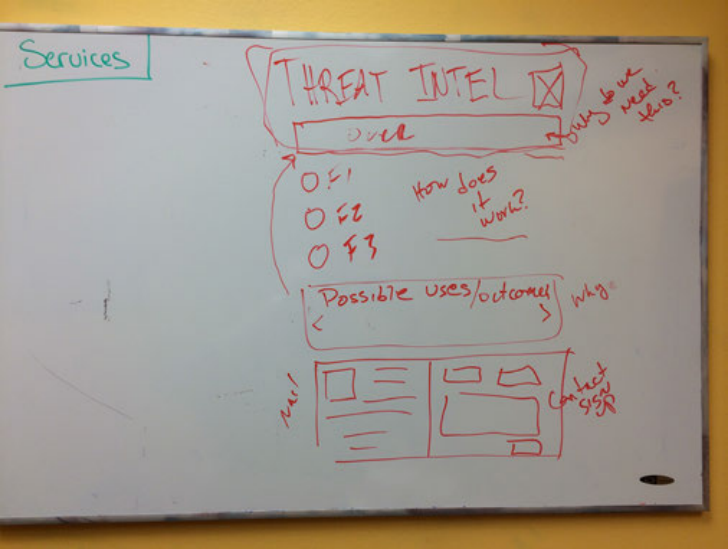 Services
THREAT INTEL
over
why do we
need
this?
F1
F2
F3
How does
it
work?
Possible uses/outcomes
why
Contact
sign
up